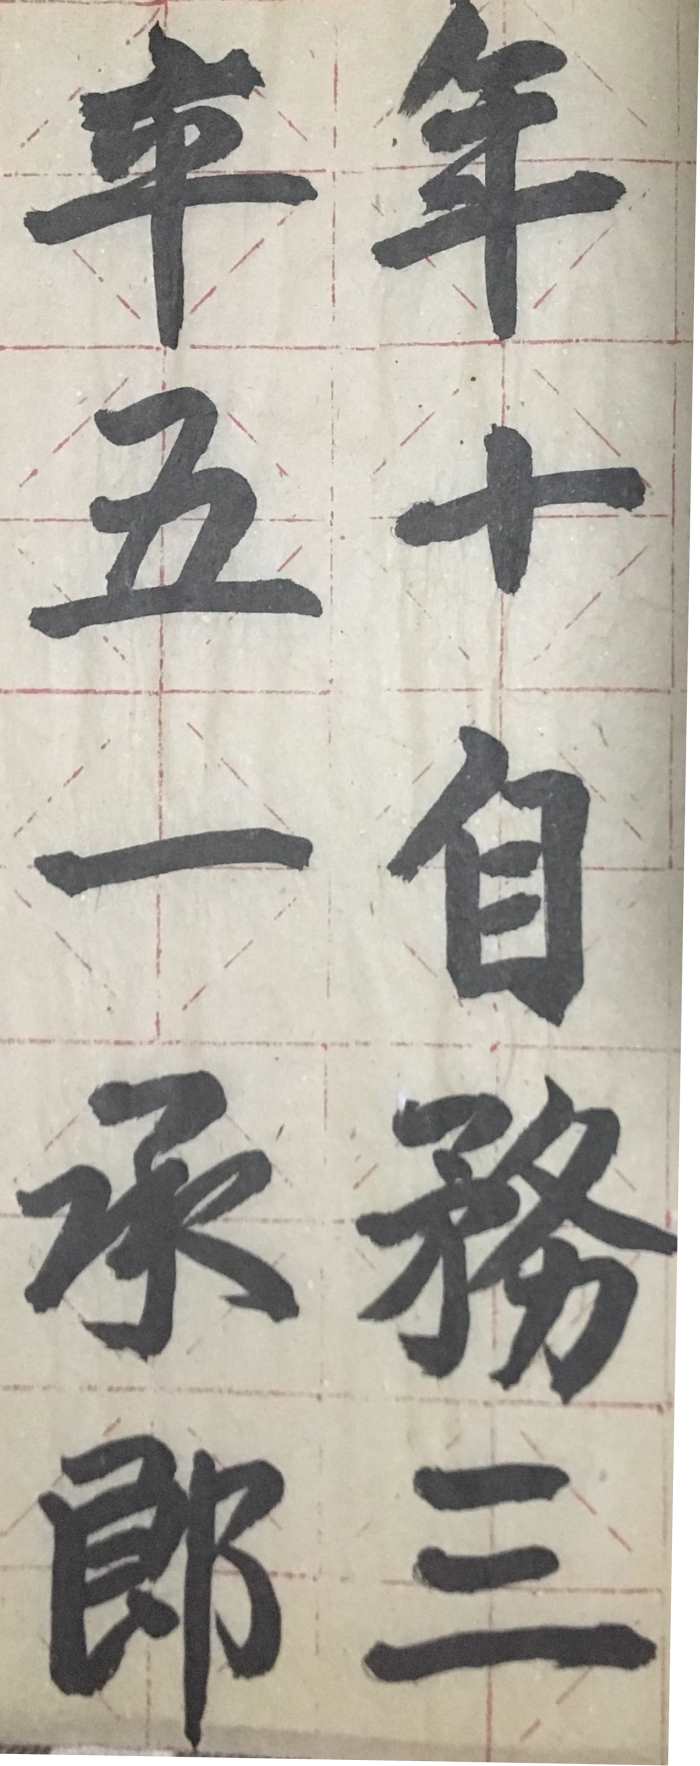 年十自務三
車五一承郎